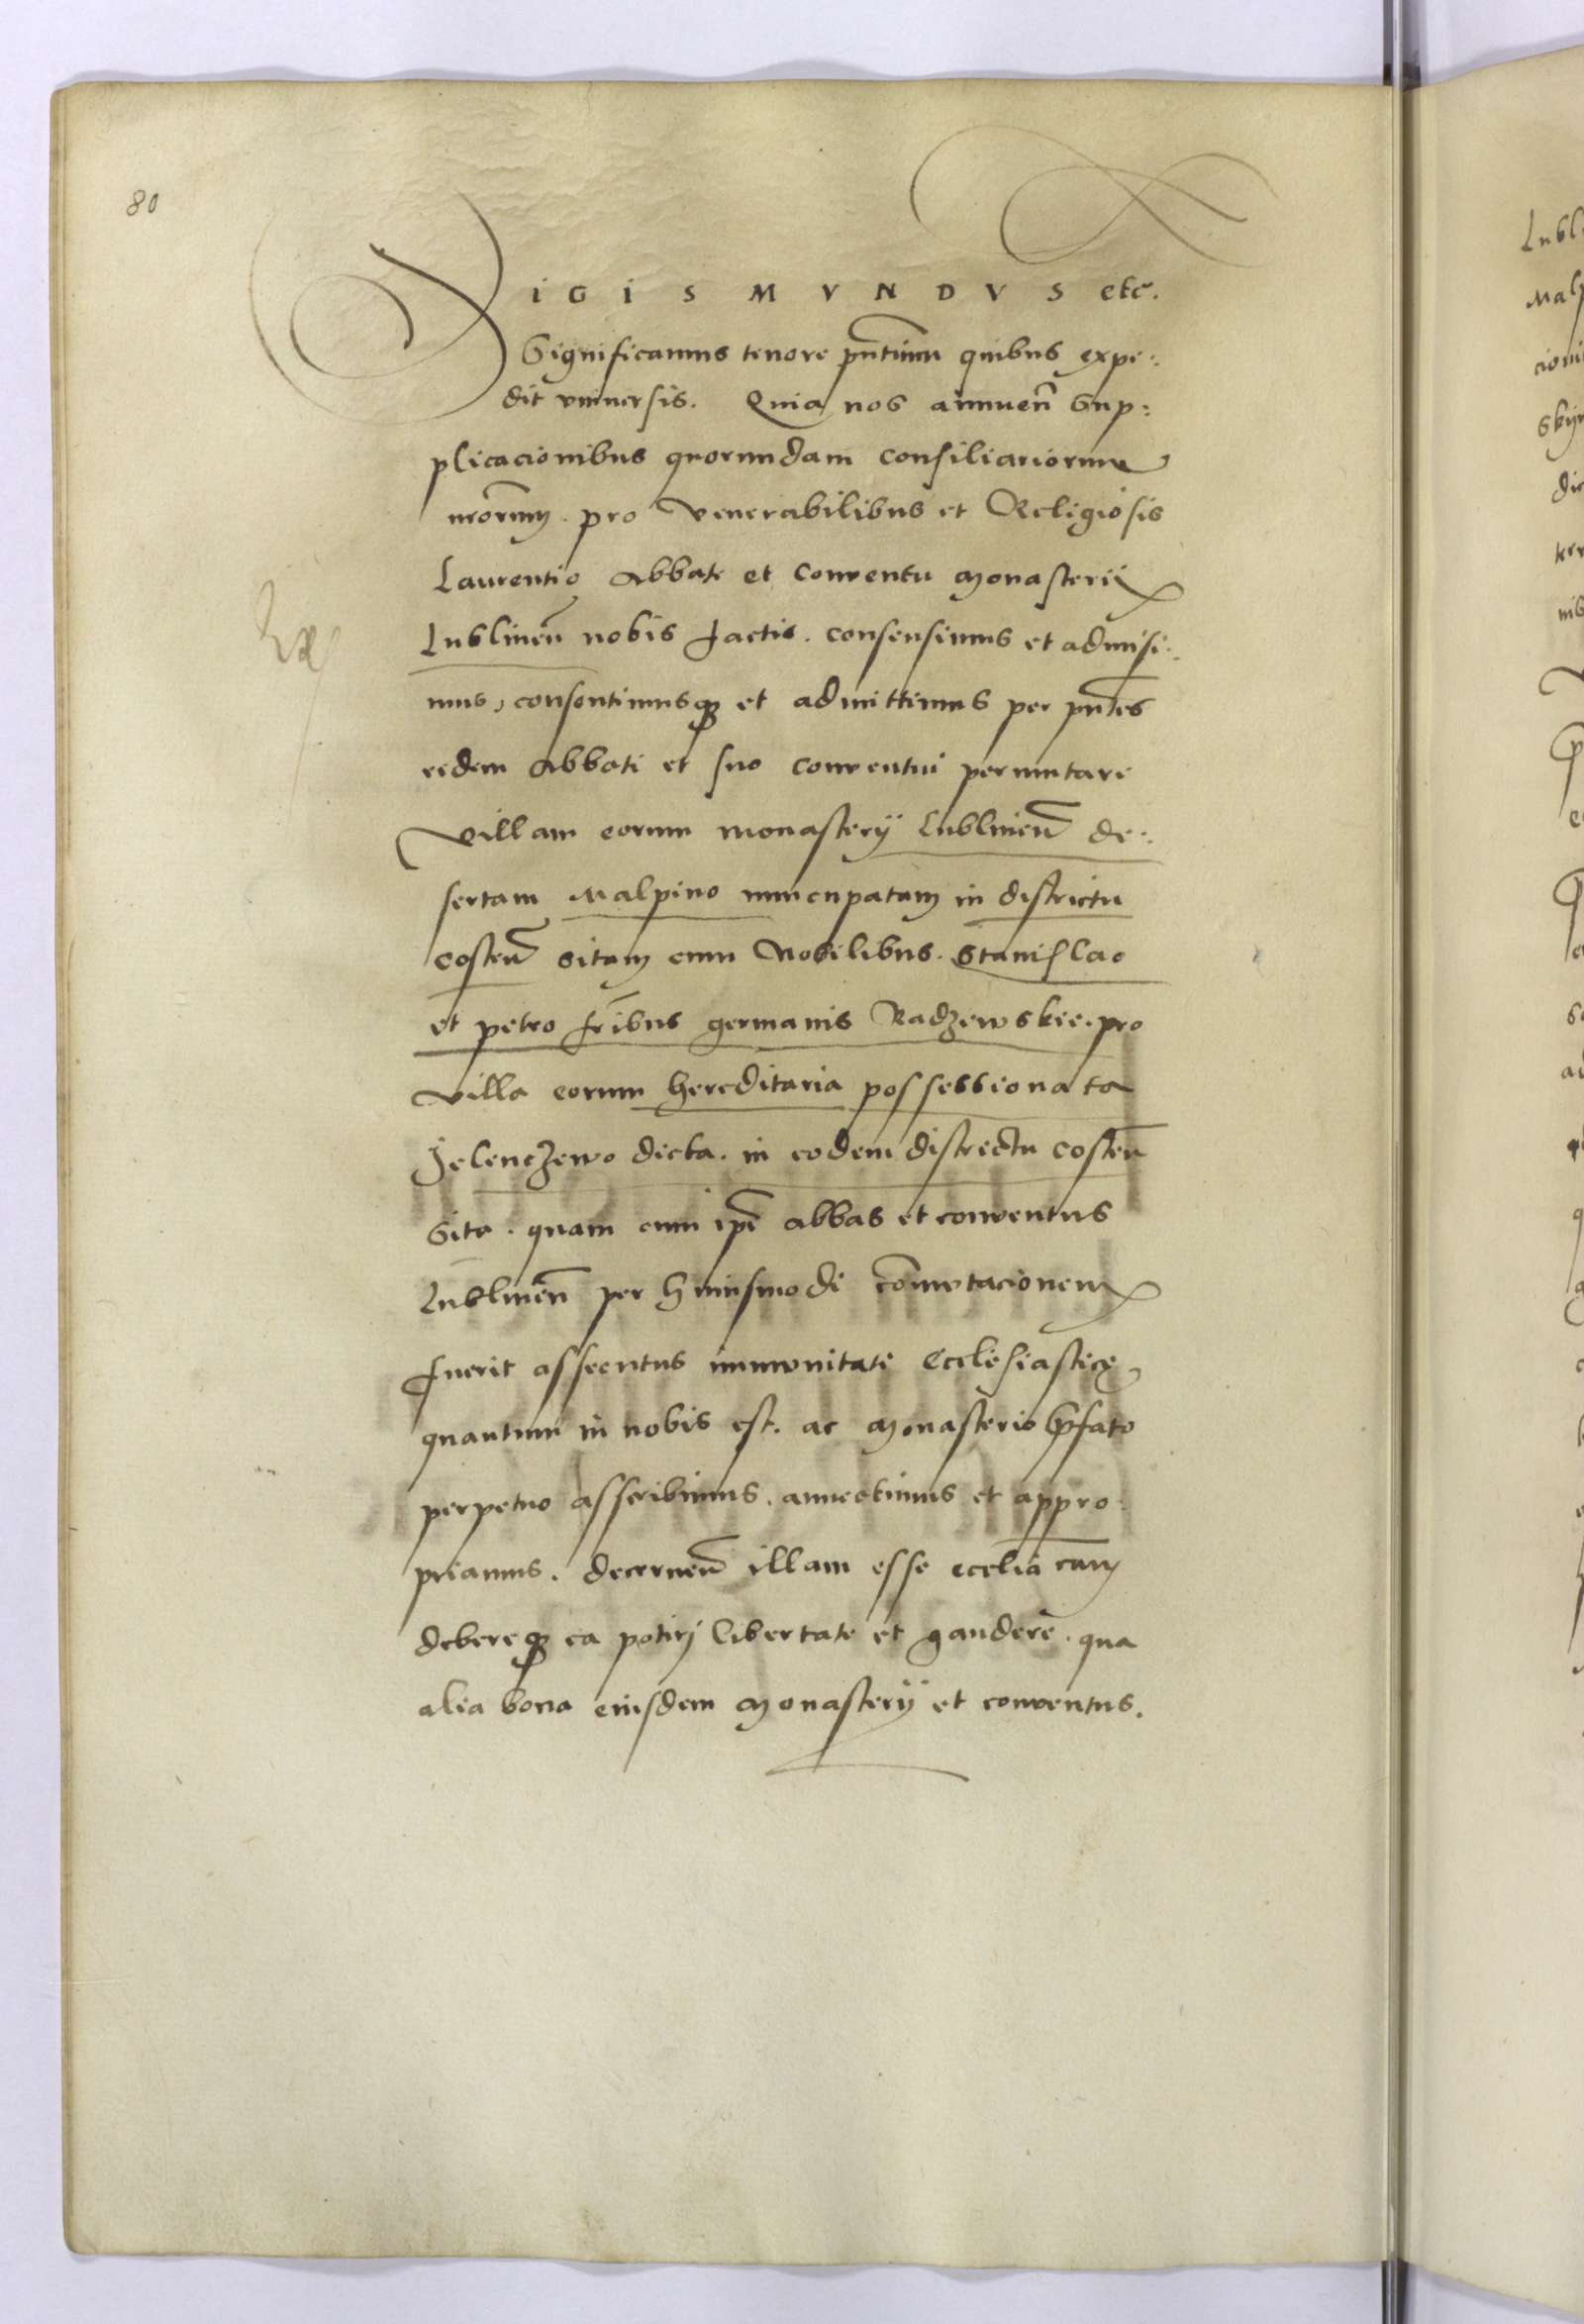 80
SIGISMVNDVS etc.
Significamus tenore pñtium quibus expe:
dit vniuersis. Quia nos annuen̄ Sup:
plicacionibus quorundam consiliariorum
nrōrum. pro Venerabilibus et Religiosis
Laurentio Abbate et Conuentu Monasterii
Lublinen̄ nobis factis. consensimus et admisi:
mus, consentimusq3 et admittimus per pn̄tes
eidem Abbati et suo conuentui permutare
villam eorum monasterÿ Lublinen̄ de:
sertam Malpino nuncupatam in districtu
Costen̄ sitam cum Nobilibus. Stanislao
et petro fr̄ibus germanis Radzewskie. pro
villa eorum hereditaria possessionata
Jelenczewo dicta. in eodem districtu Costen̄
Sita. quam cum ip̄e abbas et conuentus
Lublinen̄ per huiusmodi com̄utacionem
fuerit assecutus immunitati Ecclesiastice,
quantum in nobis est. ac Monasterio p̄fato
perpetuo asscribimus. annectimus et appro:
priamus. decernen̄ illam esse eccl̄iāicam
debereq3 ea potirj libertate et gaudere. qua
alia bona eiusdem Monasterÿ et conuentus.